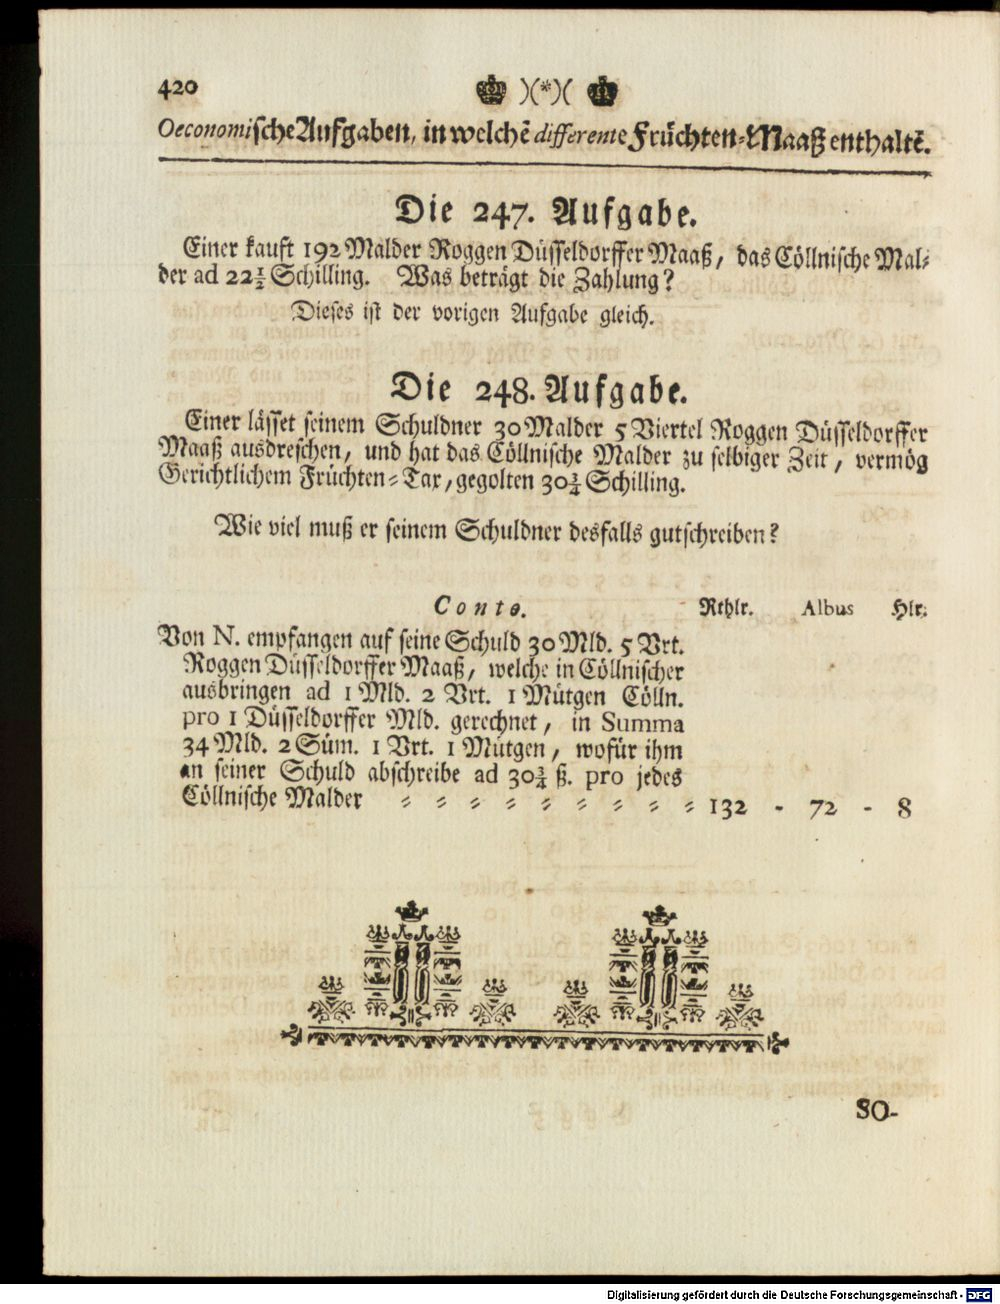 420 )(*)(
Oeconomische Aufgaben, in welchẽ differente Früchten-Maaß enthaltẽ.
Die 247. Aufgabe.
Einer kauft 192 Malder Roggen Düsseldorffer Maaß, das Cöllnische Mal-
der ad 22½ Schilling. Was beträgt die Zahlung?
Dieses ist der vorigen Aufgabe gleich.
Die 248. Aufgabe.
Einer lässet seinem Schuldner 30 Malder 5 Viertel Roggen Düsseldorffer
Maaß ausdreschen, und hat das Cöllnische Malder zu selbiger Zeit, vermög
Gerichtlichem Früchten-Tax, gegolten 30¾ Schilling.
Wie viel muß er seinem Schuldner desfalls gutschreiben?
Conto. Rthlr. Albus Hlr.
Von N. empfangen auf seine Schuld 30 Mld. 5 Vrt.
Roggen Düsseldorffer Maaß, welche in Cöllnischer
ausbringen ad 1 Mld. 2 Vrt. 1 Mütgen Cölln.
pro 1 Düsseldorffer Mld. gerechnet, in Summa
34 Mld. 2 Süm. 1 Vrt. 1 Mütgen, wofür ihm
an seiner Schuld abschreibe ad 30¾ ß. pro jedes
Cöllnische Malder = = = = = = = = = 132 - 72 - 8
SO-
Digitalisierung gefördert durch die Deutsche Forschungsgemeinschaft - DFG